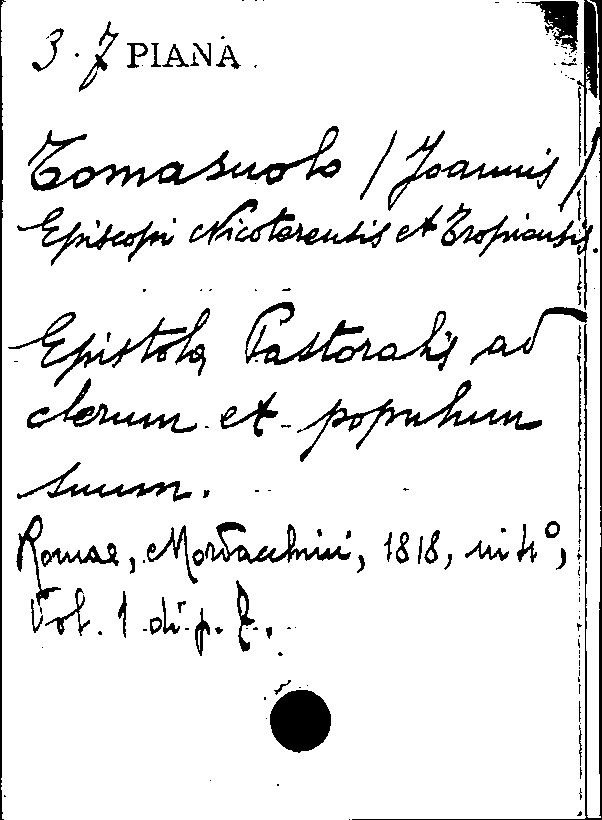 3. 7 PIANA
Tomasuolo / Joannis /
Episcopi Nicoterensis et Tropiensis.
Epistola Pastoralis ad
clerum et populum
suum.
Romae, Mordacchini, 1818, in 4°,
Vol. 1 di p. 7.